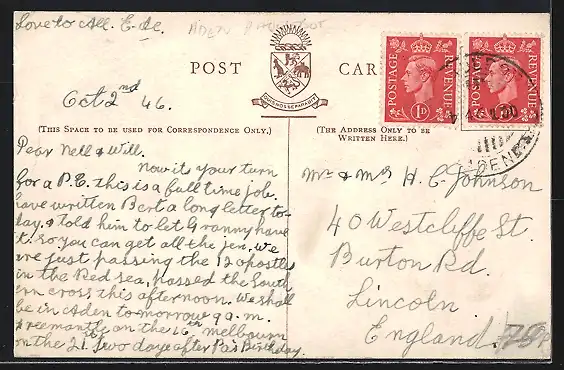 Love to All. E. &c.
ADEN
POST CARD
POSTAGE REVENUE 1D
POSTAGE REVENUE
Oct 2nd 46.
(THIS SPACE TO BE USED FOR CORRESPONDENCE ONLY.)
(THE ADDRESS ONLY TO BE
WRITTEN HERE.)
Dear Nell & Will.
Now its your turn
for a P.C. this is a full time job.
have written Bert a long letter to-
day, & told him to let Granny have
it. so you can get all the jen. We
are just passing the 12 apostles
in the Red sea, passed the South
ern cross this afternoon. We shall
be in Aden to morrow 9 a.m.
Freemantle on the 16th melbourn
on the 21st Two days after Pa's Birthday.
Mr & Mrs H. C. Johnson
40 Westcliffe St.
Burton Rd.
Lincoln
England.